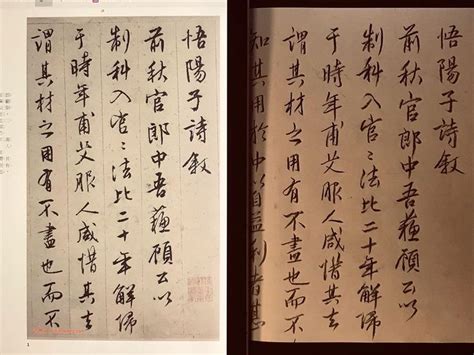 悟陽子詩敘
前秋官郎中吾蘓顧公以
制科入官〻法比二十年解歸
于時年甫艾服人咸惜其去
謂其材之用有不盡也而不
悟陽子詩敘
前秋官郎中吾蘓顧公以
制科入官〻法比二十年解歸
于時年甫艾服人咸惜其去
謂其材之用有不盡也而不
知其用於中以自益利者甚